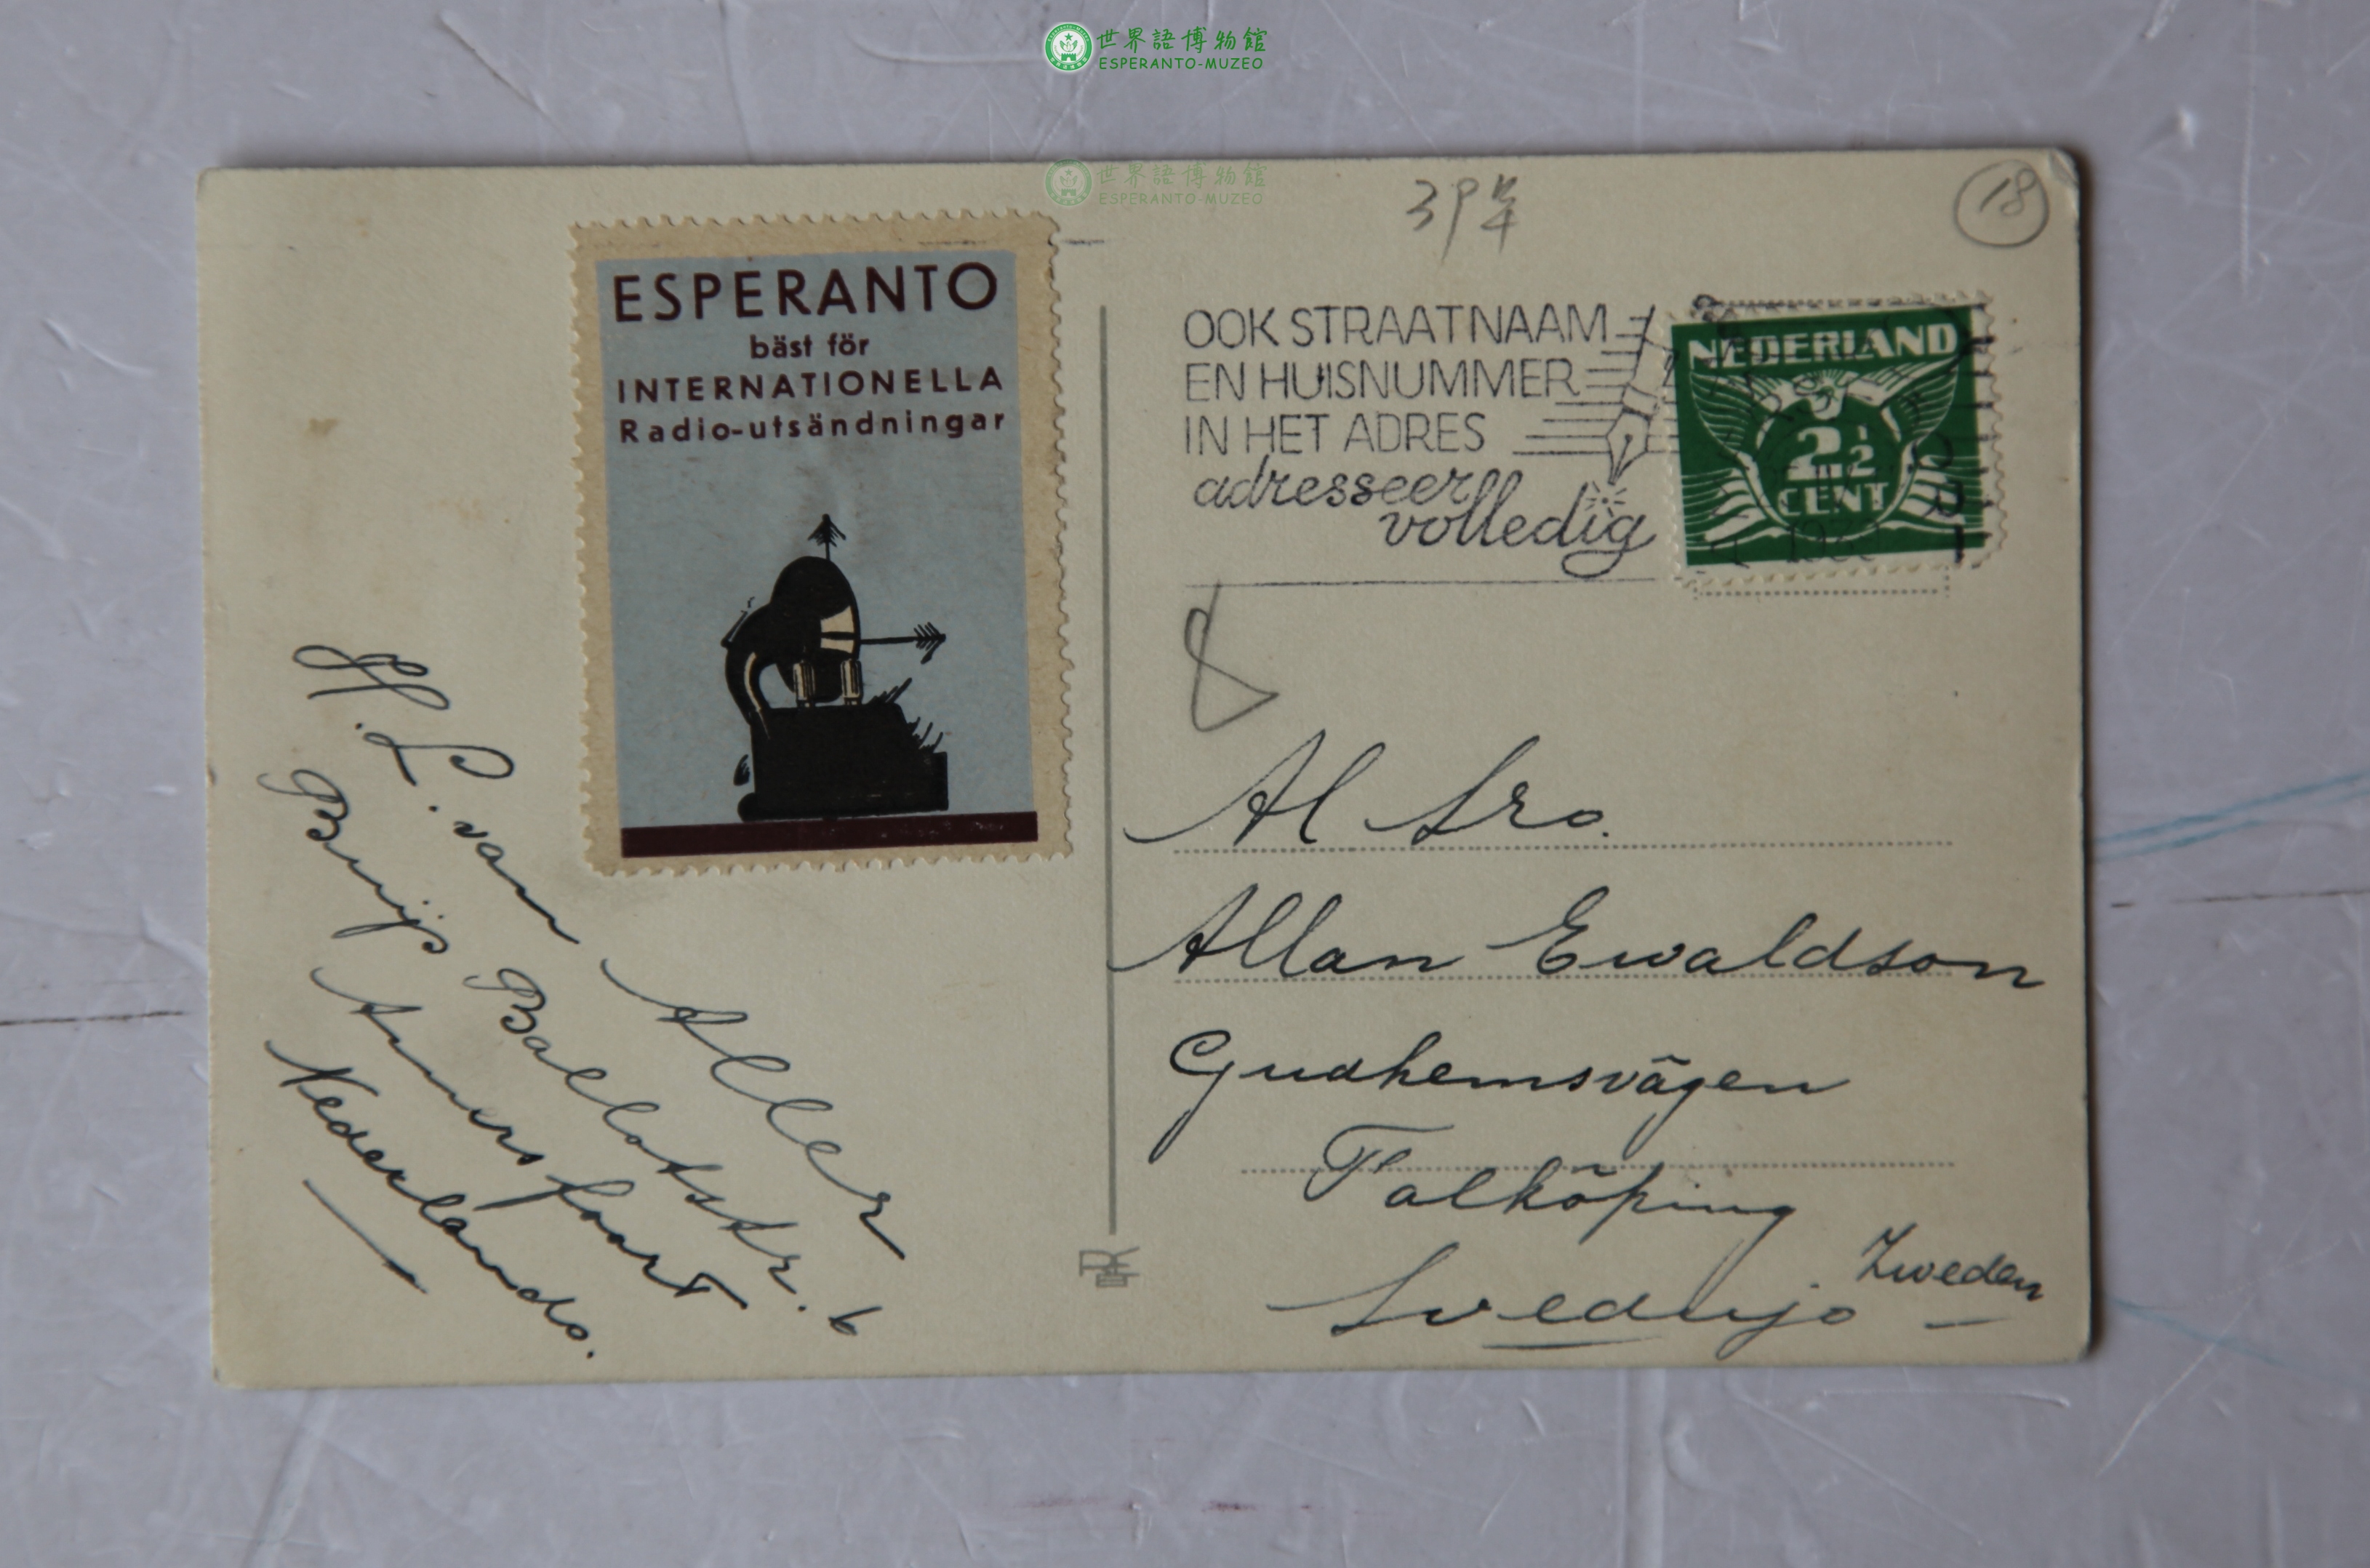 世界語博物館
ESPERANTO-MUZEO
世界語博物館
ESPERANTO-MUZEO
39年
18
ESPERANTO
bäst för
INTERNATIONELLA
Radio-utsändningar
OOK STRAATNAAM
EN HUISNUMMER
IN HET ADRES
adresseer
volledig
NEDERLAND
2½
CENT
8
Al Sro.
Allan Ewaldson
Gudhemsvägen
Falköping
Svedujo
Zweden
H. L. van Aller
Buijs Ballotstr. 6
Amersfoort
Nederlando.